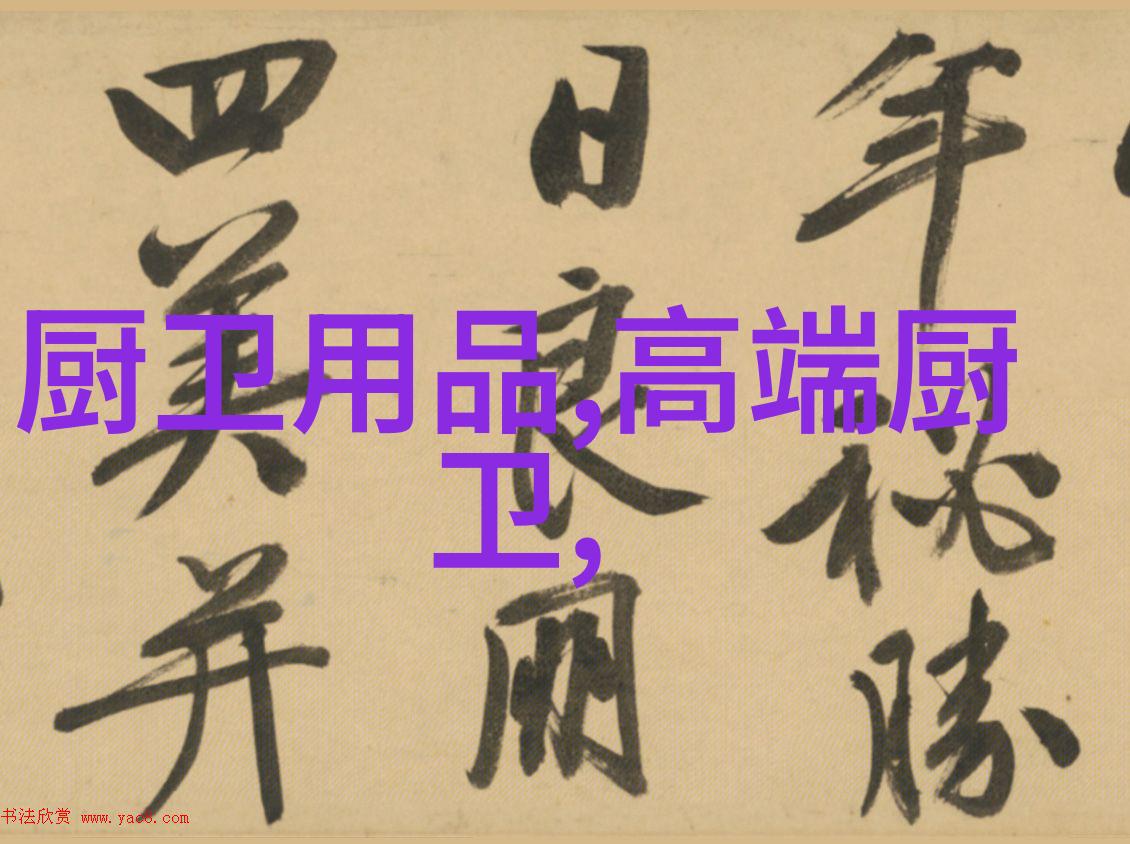 厨卫用品,高端厨
卫,
年秘勝
日良朋
四美并
书法欣赏 www.yac8.com